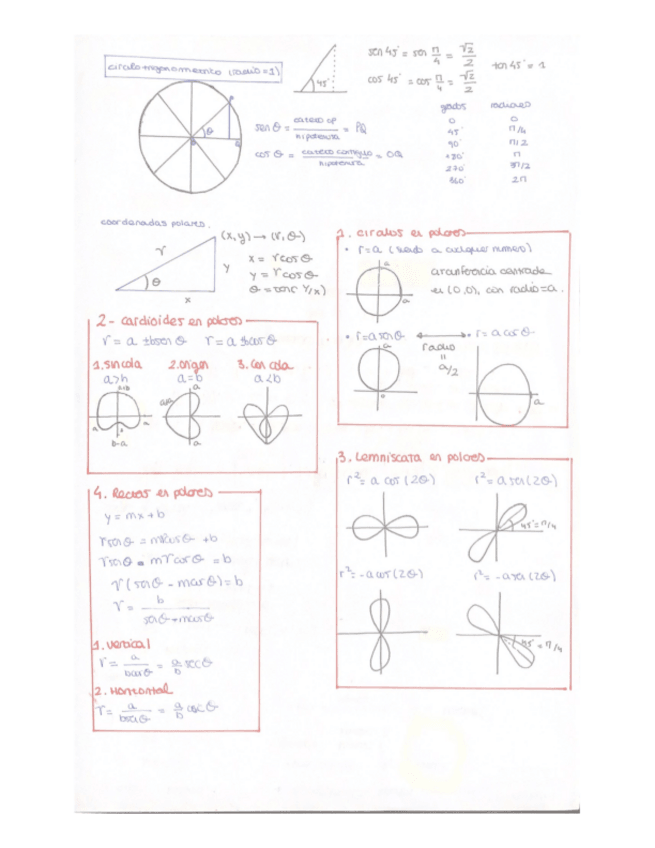 circulo trigonometrico (radio=1)
45°
sen 45° = sen π/4 = √2/2
cos 45° = cos π/4 = √2/2
tan 45° = 1
sen θ = cateto op / hipotenusa = PQ
cos θ = cateto contiguo / hipotenusa = OQ
grados radianes
0 0
45° π/4
90° π/2
180° π
270° 3π/2
360° 2π
coordenadas polares.
r
θ
x
y
(x,y) → (r,θ)
x = r cos θ
y = r cos θ
θ = tan( y/x)
1. circulos en polares
• r=a (siendo a cualquier numero)
a
a
circunferencia centrada
en (0,0), con radio=a.
• r=a sen θ ↔ • r= a cos θ
radio
=
a/2
a
o
a
2- cardioides en polares
r = a ± b sen θ r = a ± b cos θ
1. sin cola 2. origen 3. con cola
a>b a=b a<b
a+b
a
a
b-a
a
a
3. Lemniscata en polares
r² = a cos (2θ) r² = a sen (2θ)
45° = π/4
r² = -a cos (2θ) r² = -a sen (2θ)
45° = π/4
4. Rectas en polares
y = mx + b
r sen θ = m r cos θ + b
r sen θ - m r cos θ = b
r (sen θ - m cos θ) = b
r = b / sen θ - m cos θ
1. Vertical
r = a / b cos θ = a/b sec θ
2. Horizontal
r = a / b sen θ = a/b csc θ